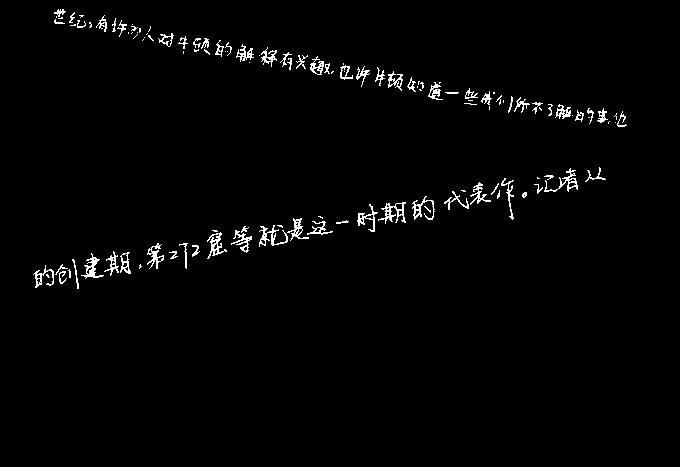 世纪,有许多人对牛顿的解释有兴趣,也许牛顿知道一些我们所不了解的事,也
的创建期,第272窟等就是这一时期的代表作。记者从